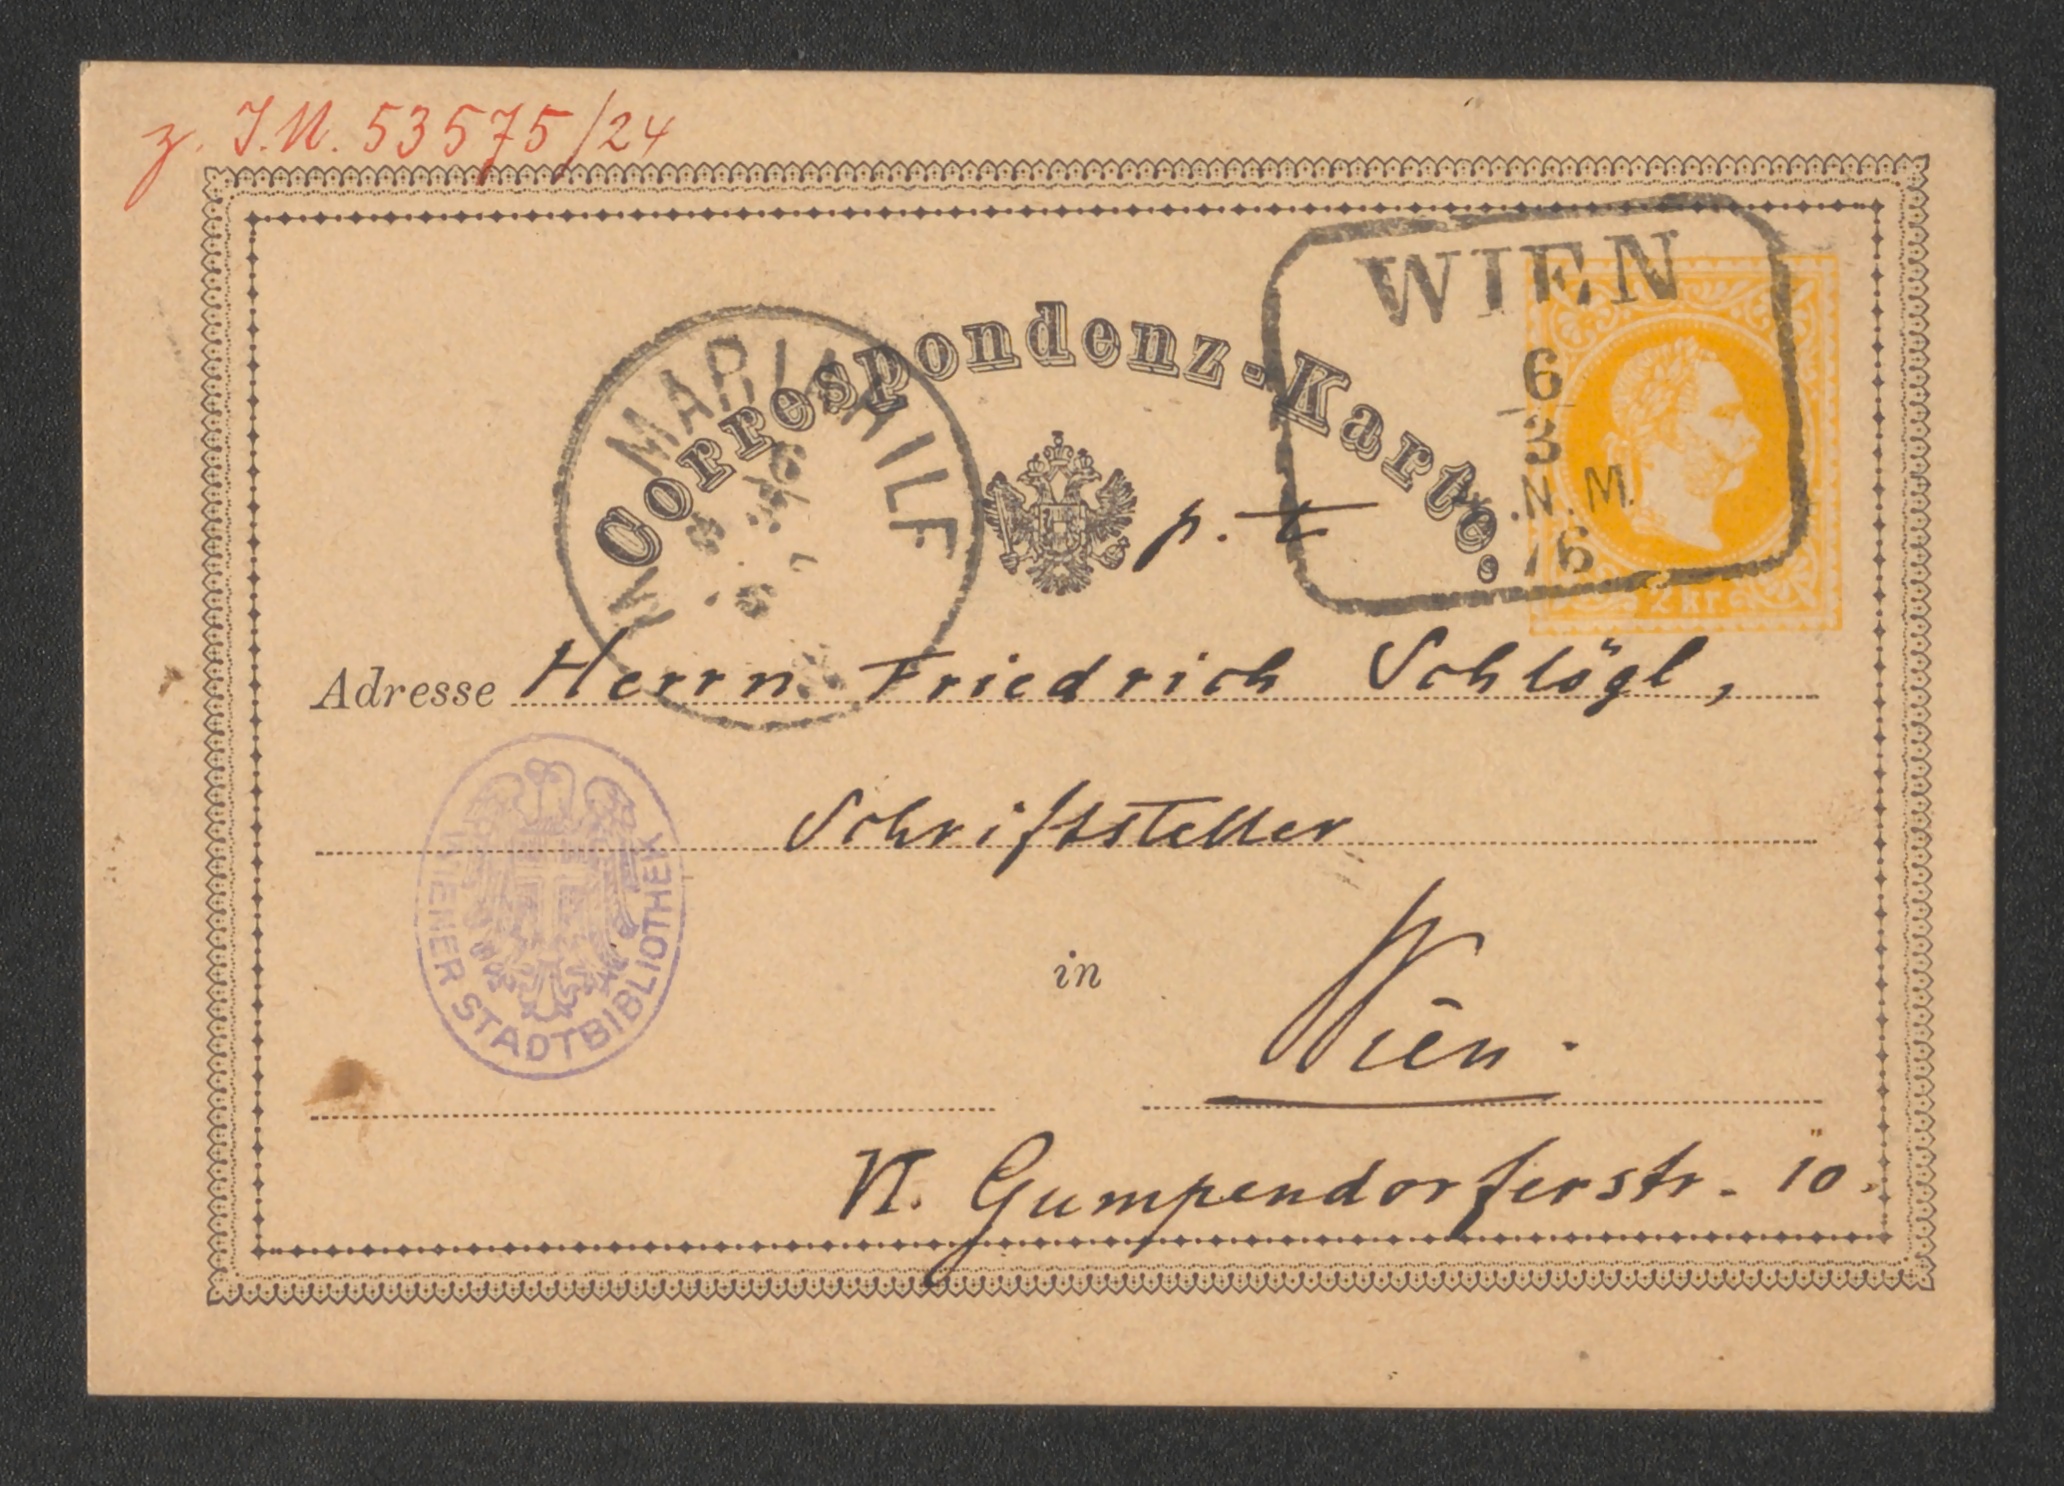 z. I.N. 53575/24
Correspondenz-Karte.
WIEN
6
3
N.M.
76
MARIAHILF
2 kr.
p. t
Adresse Herrn Friedrich Schlögl,
Schriftsteller
in Wien.
VI. Gumpendorferstr. 10.
WIENER STADTBIBLIOTHEK